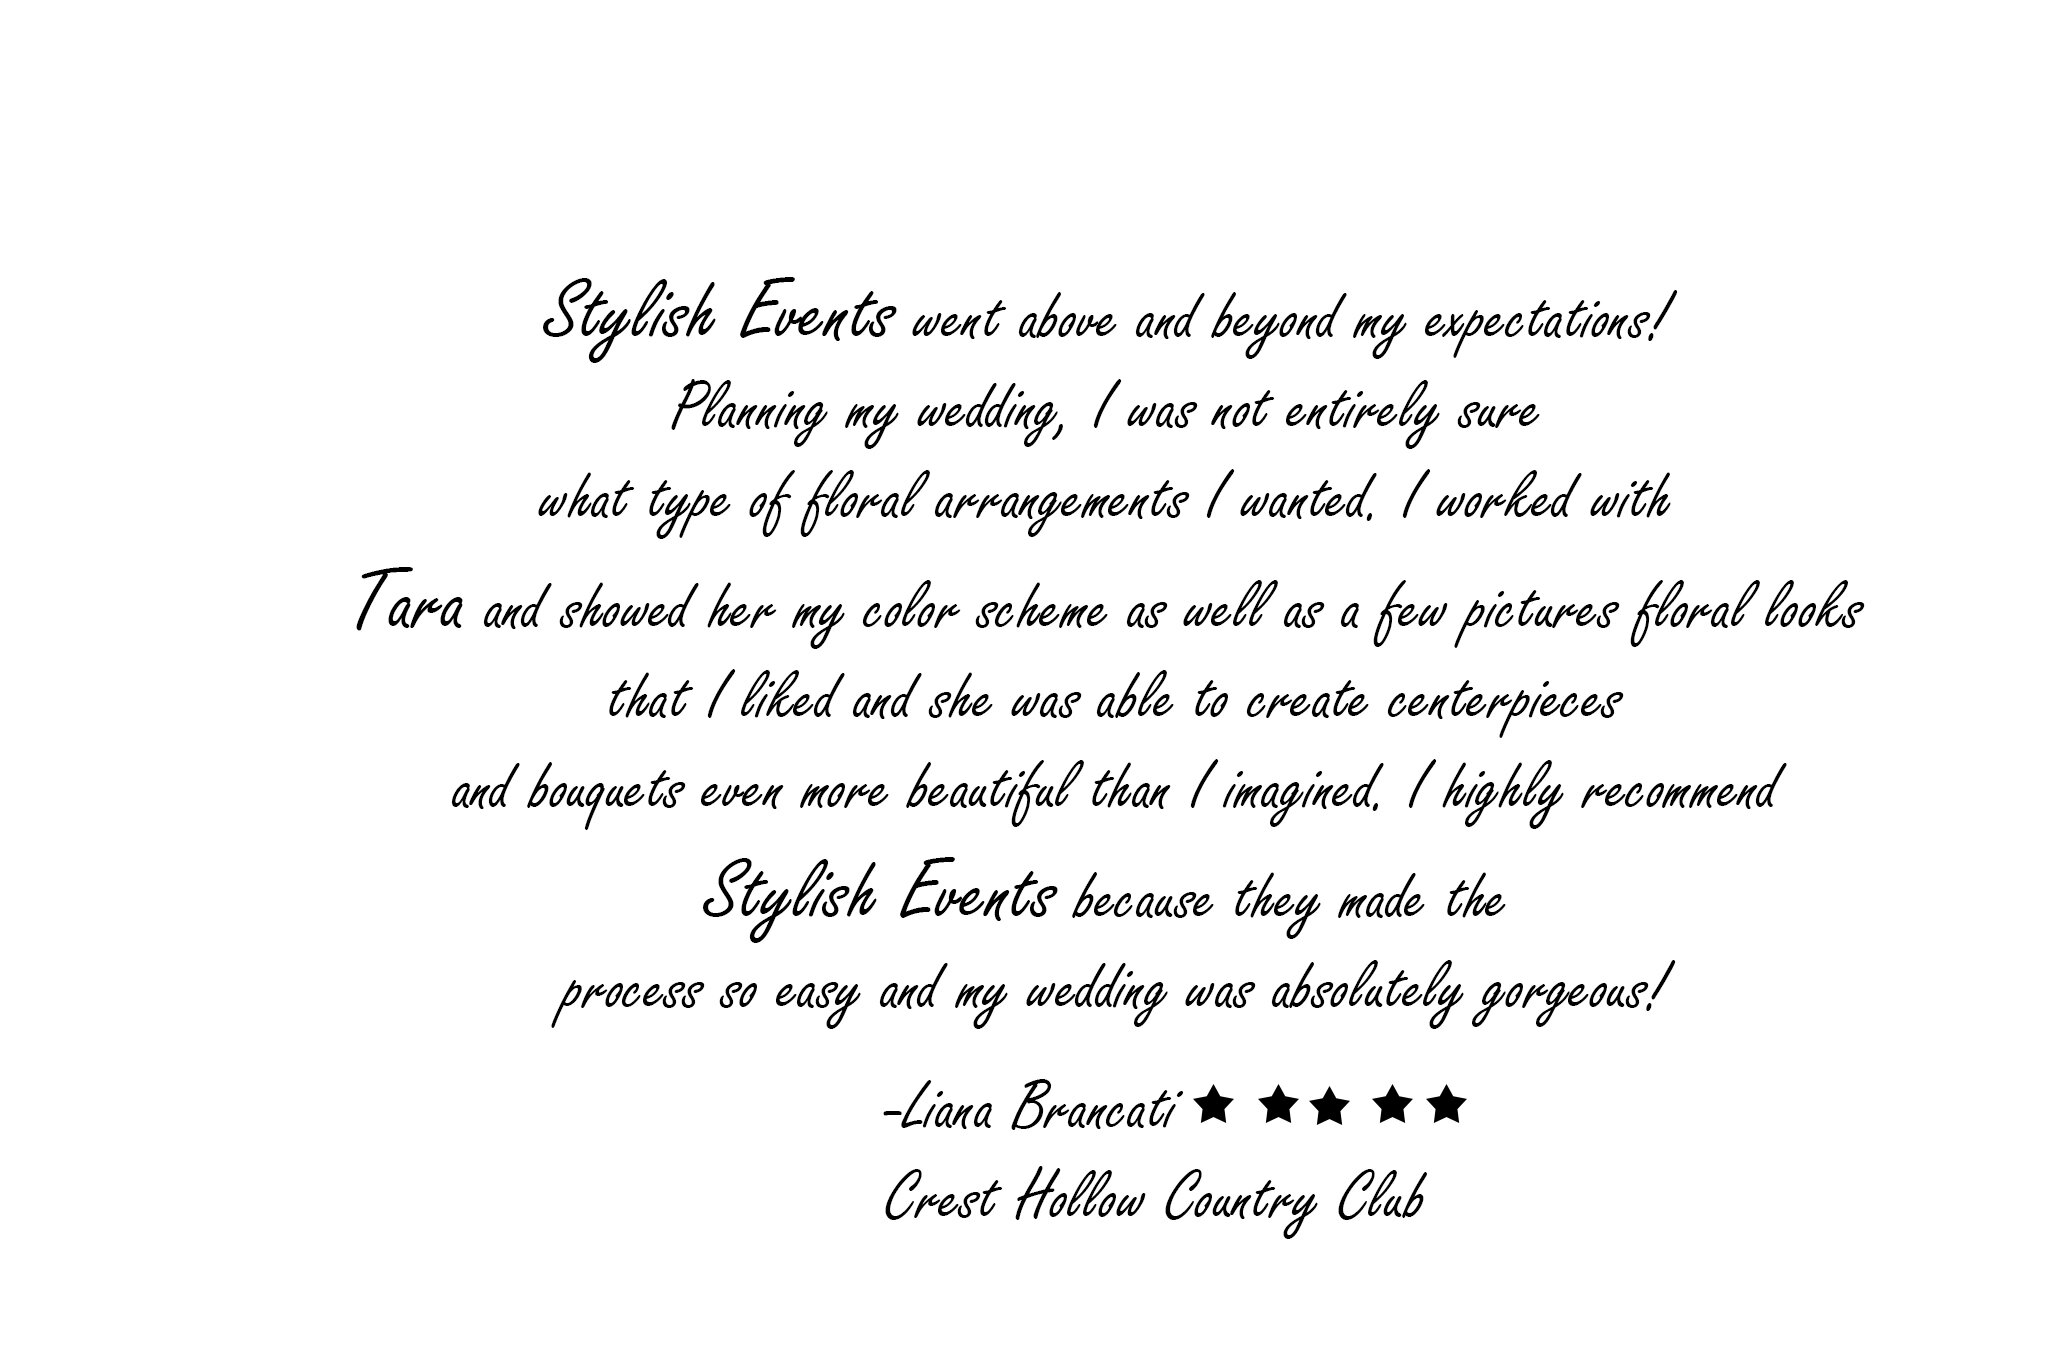 Stylish Events went above and beyond my expectations!
Planning my wedding, I was not entirely sure
what type of floral arrangements I wanted. I worked with
Tara and showed her my color scheme as well as a few pictures floral looks
that I liked and she was able to create centerpieces
and bouquets even more beautiful than I imagined. I highly recommend
Stylish Events because they made the
process so easy and my wedding was absolutely gorgeous!
-Liana Brancati ★ ★ ★ ★ ★
Crest Hollow Country Club